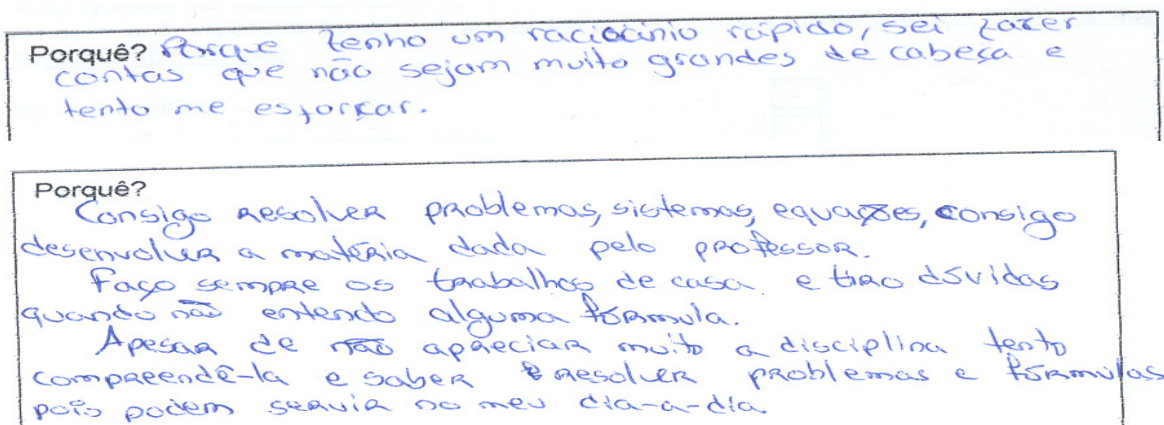 Porquê? Porque tenho um raciocínio rápido, sei fazer
contas que não sejam muito grandes de cabeça e
tento me esforçar.
Porquê?
Consigo resolver problemas, sistemas, equações, consigo
desenvolver a matéria dada pelo professor.
Faço sempre os trabalhos de casa e tiro dúvidas
quando não entendo alguma fórmula.
Apesar de não apreciar muito a disciplina tento
compreendê-la e saber resolver problemas e fórmulas
pois podem servir no meu dia-a-dia.